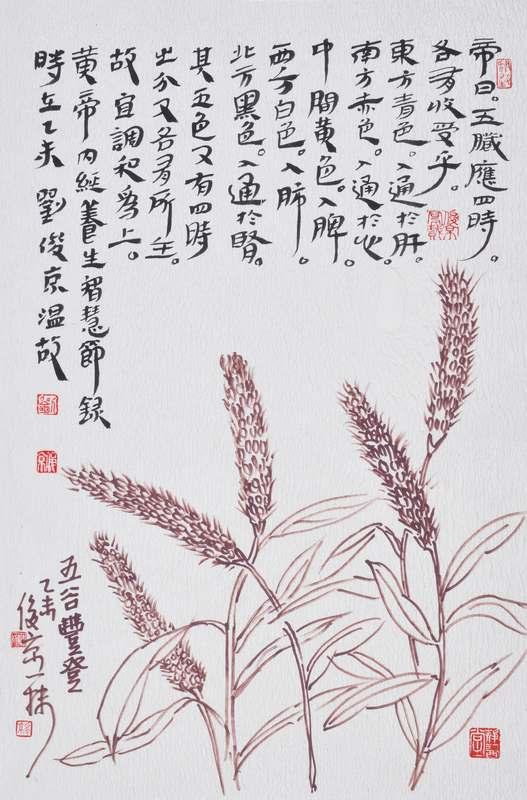 帝曰。五臟應四時。
各有收受乎。
東方青色。入通於肝。
南方赤色。入通於心。
中間黄色。入脾。
西方白色。入肺。
北方黑色。入通於腎。
其五色又有四時
之分又各有所主。
故宜調和為上。
黄帝内經養生智慧節録
時在乙未 劉俊京温故
五谷豐登
乙未
俊京一揮